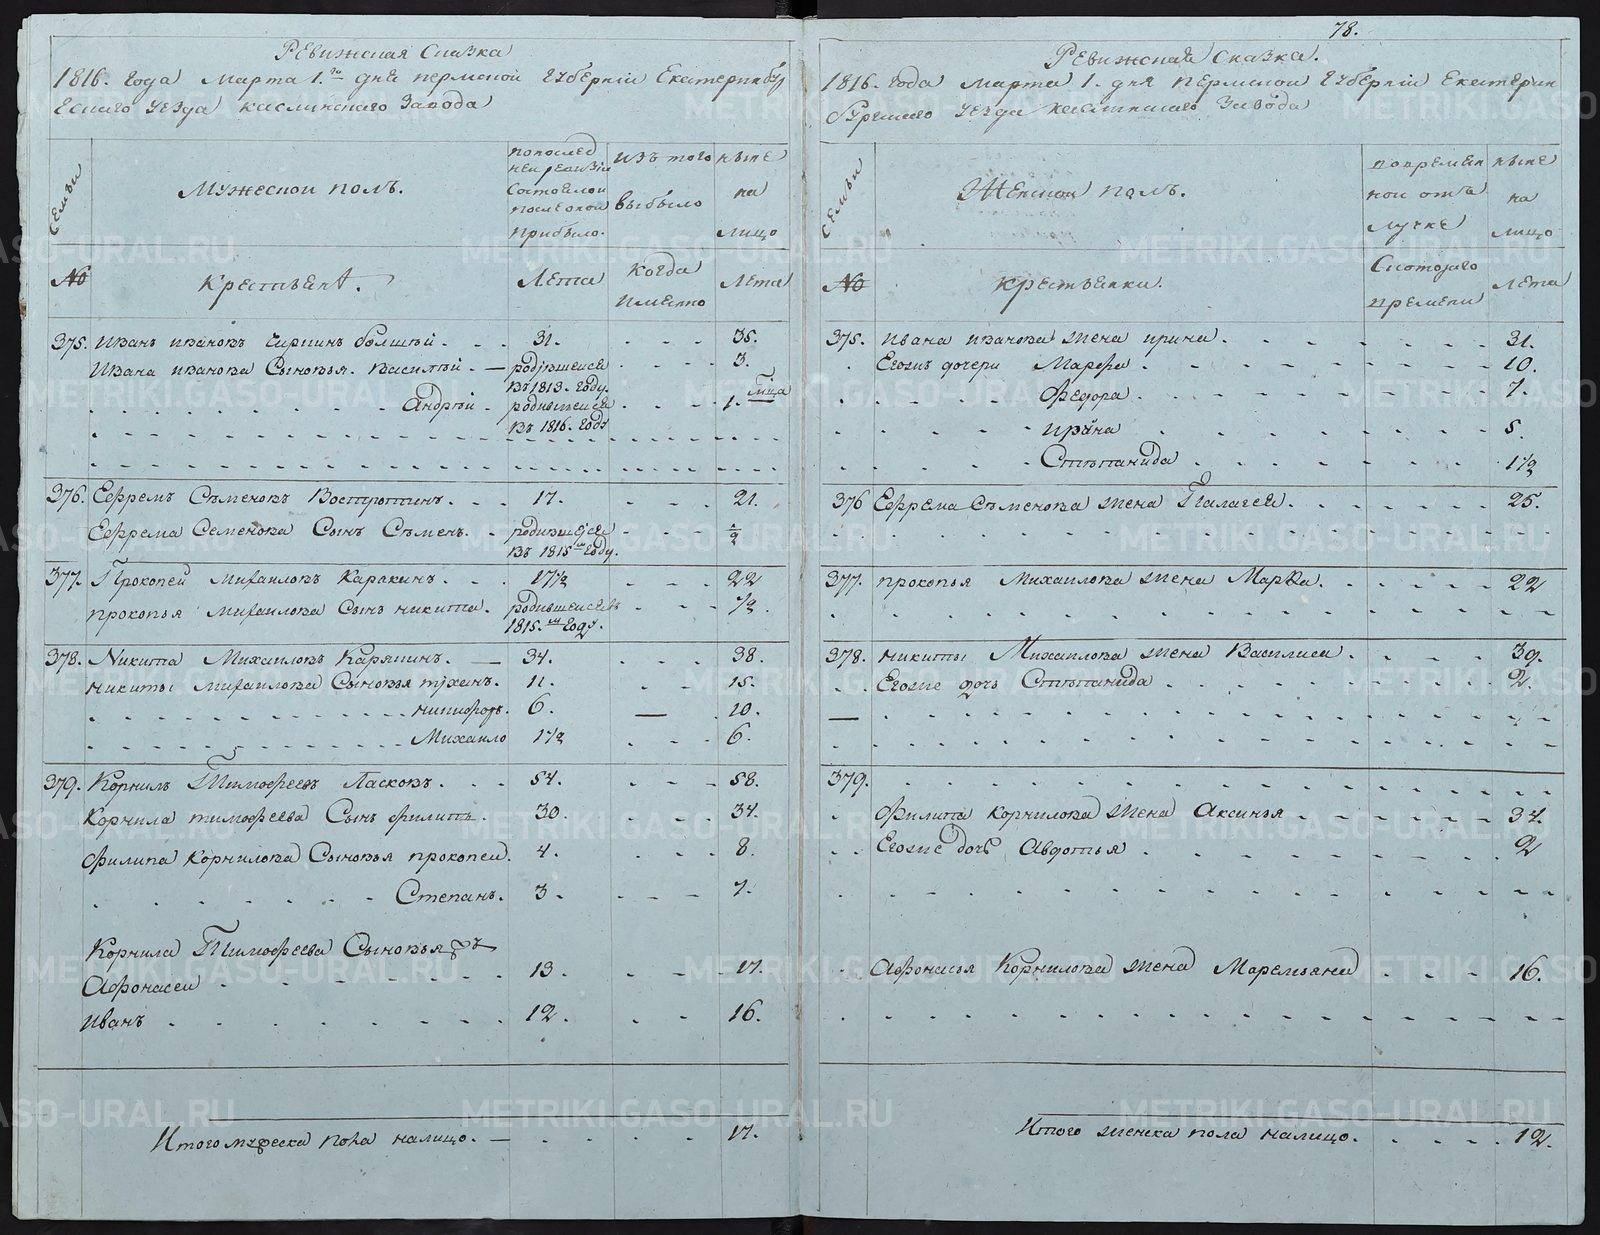 78.
Ревижская Сказка
1816. года Марта 1.го дня пермской губерніи Екатеринбу
гскаго уезда каслинскаго завода
Семьи
Мужескои полъ.
попослед
неи ревизіи
Состоялои
послеонои
прибыло.
изъ того
выбыло
ныне
на
лицо
№
Крестьянѣ.
Лета
когда
имянно
Лета
375. Иванъ ивановъ Чирпинъ болшеи. 31. 35.
Ивана иванова Сыновья. Василеи. — родившеися 3.
въ 1813. году.
Андреи. родившеися 1.
въ 1816. году
376. Ефремъ Семеновъ Востротинъ. 17. 21.
Ефрема Семенова Сынъ Семенъ. родившеися 1/2
въ 1815 году.
377. Прокопеи михаиловъ Карякинъ. 17 1/2 22
прокопья михаилова Сынъ никита. родившеися въ 1/2.
1815. году.
378. Никита Михаиловъ Карякинъ. — 34. 38.
никиты михаилова Сыновья тиханъ. 11. 15.
никифоръ. 6. — 10.
Михаило 1 1/2 6.
379. Корнилъ Тимофеевъ Ласковъ. 54. 58.
Корнила тимофеева Сынъ филипъ. 30. 34.
Филипа Корнилова Сыновья прокопеи. 4. 8.
Степанъ. 3. 7.
Корнила Тимофеева Сыновья
Афонасеи 13. 17.
Иванъ 12. 16.
Итого мужеска пола налицо. — 17.
Ревижская Сказка.
1816. года марта 1. дня пермскои губерніи Екатерин
бургскаго уезда каслинскаго завода
Семьи
Женскои полъ.
вовремян
нои отъ
лучке
ныне
на
лицо
№
крестьянки.
Скотораго
времени
лета
375. Ивана иванова жена ирина. 31.
Егожъ дочери Марфа 10.
Федора. 7.
ирина 5.
Степанида 1 1/2
376 Ефрема Семенова жена Палагея. 25.
377. прокопья Михаилова жена Марфа. 22
378. никиты Михаилова жена Василиса. 39.
Егоже дочь Степанида 2.
379.
Филипа корнилова жена Аксинья 34.
Егоже дочь Авдотья. 2
Афонасья Корнилова жена Маремьяна 16.
Итого женска пола налицо. 12.
METRIKI.GASO-URAL.RU